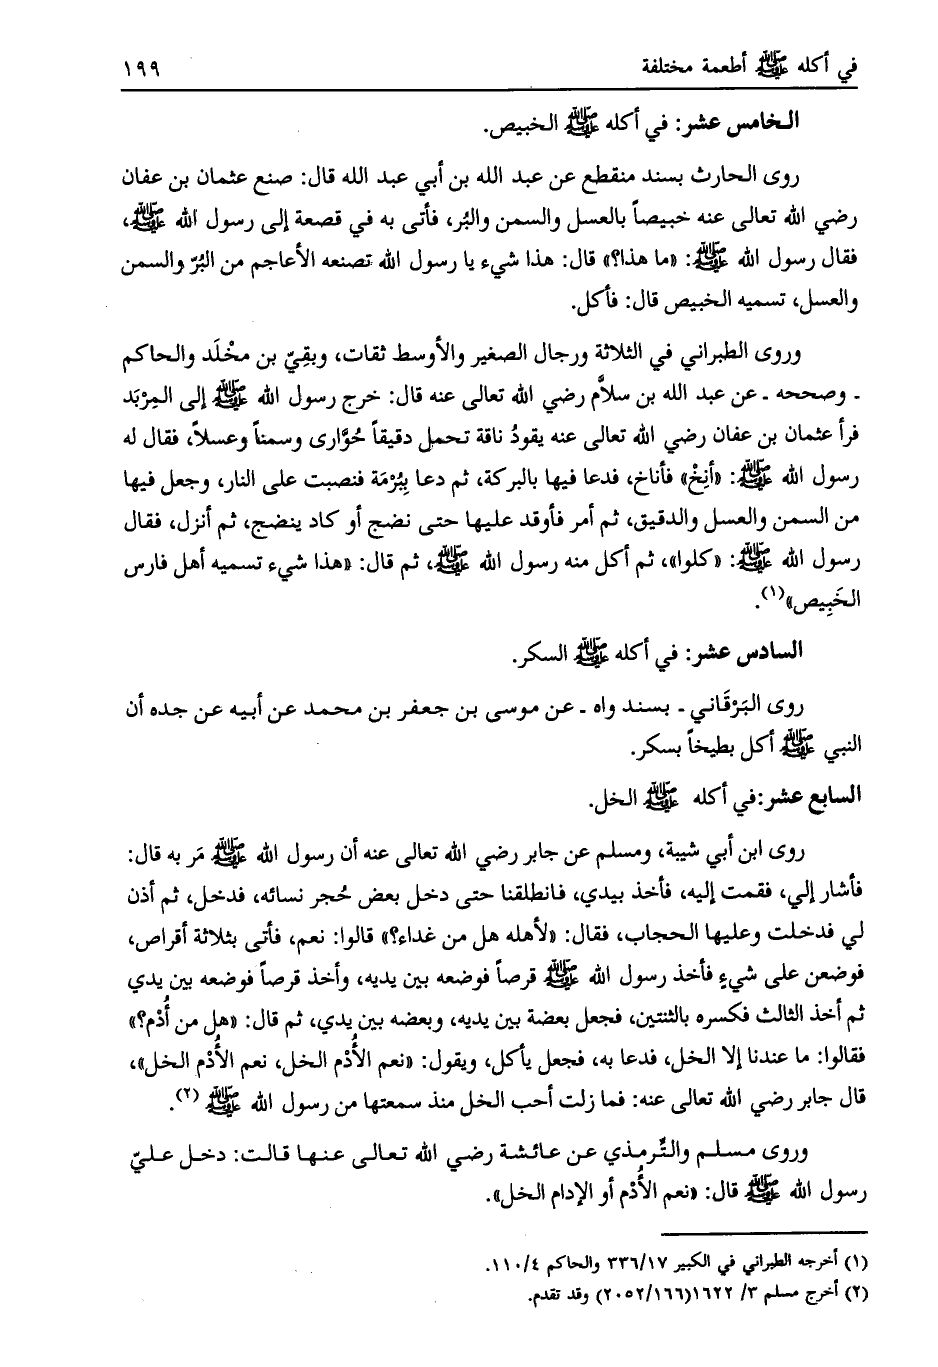 في أكله ﷺ أطعمة مختلفة ١٩٩
الخامس عشر: في أكله ﷺ الخبيص.
روى الحارث بسند منقطع عن عبد الله بن أبي عبد الله قال: صنع عثمان بن عفان
رضي الله تعالى عنه خبيصاً بالعسل والسمن والبُر، فأتى به في قصعة إلى رسول الله ﷺ،
فقال رسول الله ﷺ: «ما هذا؟» قال: هذا شيء يا رسول الله تصنعه الأعاجم من البُرّ والسمن
والعسل، تسميه الخبيص قال: فأكل.
وروى الطبراني في الثلاثة ورجال الصغير والأوسط ثقات، وبقِيّ بن مخْلَد والحاكم
ـ وصححه ـ عن عبد الله بن سلاَّم رضي الله تعالى عنه قال: خرج رسول الله ﷺ إلى المِرْبَد
فرأ عثمان بن عفان رضي الله تعالى عنه يقودُ ناقة تحمل دقيقاً حُوَّارى وسمناً وعسلاً، فقال له
رسول الله ﷺ: «أَنِخْ» فأناخ، فدعا فيها بالبركة، ثم دعا بِبُرْمَة فنصبت على النار، وجعل فيها
من السمن والعسل والدقيق، ثم أمر فأوقد عليها حتى نضج أو كاد ينضج، ثم أنزل، فقال
رسول الله ﷺ: «كلوا»، ثم أكل منه رسول الله ﷺ، ثم قال: «هذا شيء تسميه أهل فارس
الخَبِيص»(١).
السادس عشر: في أكله ﷺ السكر.
روى البَرْقَاني ـ بسند واه ـ عن موسى بن جعفر بن محمد عن أبيه عن جده أن
النبي ﷺ أكل بطيخاً بسكر.
السابع عشر:في أكله ﷺ الخل.
روى ابن أبي شيبة، ومسلم عن جابر رضي الله تعالى عنه أن رسول الله ﷺ مَر به قال:
فأشار إلي، فقمت إليه، فأخذ بيدي، فانطلقنا حتى دخل بعض حُجر نسائه، فدخل، ثم أذن
لي فدخلت وعليها الحجاب، فقال: «لأهله هل من غداء؟» قالوا: نعم، فأتى بثلاثة أقراص،
فوضعن على شيءٍ فأخذ رسول الله ﷺ قرصاً فوضعه بين يديه، وأخذ قرصاً فوضعه بين يدي
ثم أخذ الثالث فكسره بالثنتين، فجعل بعضة بين يديه، وبعضه بين يدي، ثم قال: «هل من أُدْم؟»
فقالوا: ما عندنا إلا الخل، فدعا به، فجعل يأكل، ويقول: «نعم الأُدْم الخل، نعم الأُدْم الخل»،
قال جابر رضي الله تعالى عنه: فما زلت أحب الخل منذ سمعتها من رسول الله ﷺ (٢).
وروى مسلم والتِّرمذي عن عائشة رضي الله تعالى عنها قالت: دخل عليّ
رسول الله ﷺ قال: «نعم الأُدْم أو الإدام الخل».
(١) أخرجه الطبراني في الكبير ٣٣٦/١٧ والحاكم ١١٠/٤.
(٢) أخرج مسلم ٣/ ١٦٢٢(٢٠٥٢/١٦٦) وقد تقدم.